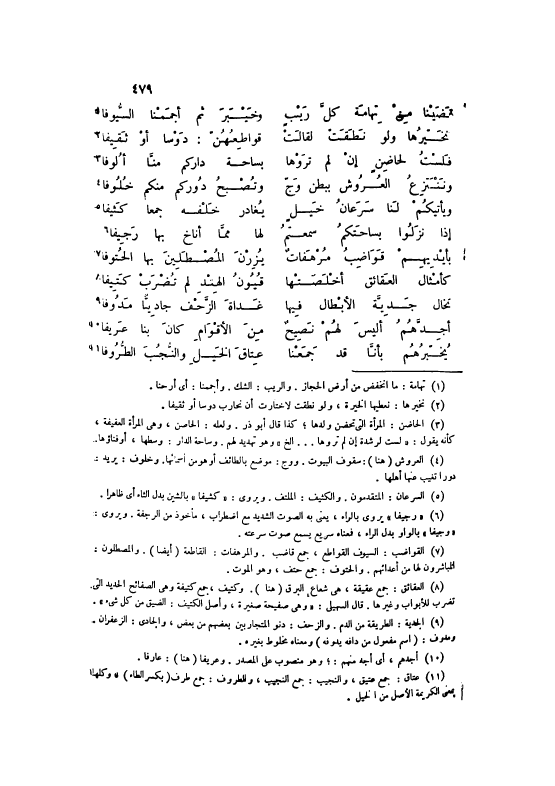 ٤٧٩
قضينا من تهامة كلَّ رَيْبٍ وخَيْبَرَ ثم أجمَمْنا السيُوفا
نخيّرُها ولو نطقتْ لقالتْ قواطعُهُنّ : دَوْسا أوْ ثقيفا٢
فلستُ لحاضِنٍ إنْ لم تروْها بساحة داركم منَّا ألوفا٣
وننتزعُ العُروش ببطن وَجّ وتُصْبحُ دُوركم منكم خُلوفا٤
ويأتيكمْ لنا سَرَعانُ خيلٍ يُغادر خلفه جمعا كثيفا٥
إذا نزلوا بساحتكُم سمعتمْ لها ممَّا أناخ بها رَجيفا٦
بأيديهمْ قواضبُ مُرْهَفاتٌ يُزِرْن المُصْطَلين بها الحُتوفا٧
كأمثال العقائق أخلصتْها قُيونُ الهِنْدِ لم تُضْرَبْ كَتيفا٨
تخال جديَّة الأبْطال فيها غداةَ الزَّحْف جاديًّا مَدُوفا٩
أجدَّهُمُ أليسَ لهُمْ نصيحٌ منَ الأقْوَام كانَ بنا عَريفا١٠
يُخبّرُهُم بأنَّا قد جمَعْنا عِتاقَ الخَيْل والنُّجُبَ الطُّروفا١١
(١) تهامة : ما انخفض من أرض الحجاز . والريب : الشك . وأجممنا : أى أرحنا .
(٢) نخيرها : نعطيها الخيرة ، ولو نطقت لاختارت أن نحارب دوسا أو ثقيفا .
(٣) الحاضن : المرأة التى تحضن ولدها ؛ كذا قال أبو ذر . ولعله : الحاصن ، وهى المرأة العفيفة ،
كأنه يقول : « لست لرشدة إن لم تروها . . . الخ » وهو تهديد لهم . وساحة الدار : وسطها ، أو فناؤها.
(٤) العروش (هنا) : سقوف البيوت . ووج : موضع بالطائف أو هو من أسمائها. وخلوف : يريد :
دورا تغيب عنها أهلها .
(٥) السرعان : المتقدمون . والكثيف : الملتف . ويروى : « كشيفا » بالشين بدل الثاء أى ظاهرا .
(٦) « رجيفا » يروى بالراء ، يعنى به الصوت الشديد مع اضطراب ، مأخوذ من الرجفة . ويروى :
« وجيفا » بالواو بدل الراء ، فعناه سريع يسمع صوت سرعته .
(٧) القواضب : السيوف القواطع ، جمع قاضب . والمرهفات : القاطعة (أيضا) . والمصطلون :
المباشرون لها من أعدائهم . والحتوف : جمع حتف ، وهو الموت .
(٨) العقائق : جمع عقيقة ، هى شعاع البرق (هنا) . وكتيف ، جمع كتيفة وهى الصفائح الحديد التى
تضرب للأبواب وغيرها . قال السهيلى : « وهى صفيحة صغيرة ، وأصل الكتيف : الضيق من كل شىء » .
(٩) الجدية : الطريقة من الدم . والزحف : دنو المتحاربين بعضهم من بعض ، والجادى : الزعفران .
ومدوف : (اسم مفعول من دافه يدوفه ) ومعناه مخلوط بغيره .
(١٠) أجدهم ، أى أجد منهم : ؛ وهو منصوب على المصدر . وعريفا (هنا) : عارفا .
(١١) عتاق : جمع عتيق ، والنجيب : جمع النجيب ، والطروف : جمع طرف( بكسر الطاء ) « وكلها
بمعنى الكريمة الأصل من الخيل .